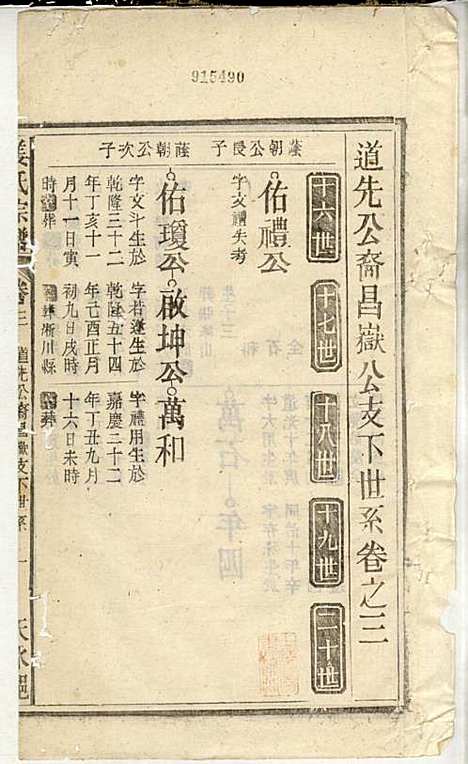 915490
道先公裔昌嶽公支下世系卷之三
十六世 十七世 十八世 十九世 二十世
蔭朝公長子
佑禮公
字文禮失考
蔭朝公次子
佑瓊公 啟坤公 萬和
字文斗生於
乾隆三十二
年丁亥十一
月十一日寅
時 葬
字若蓬生於
乾隆五十四
年己酉正月
初九日戌時
葬淅川縣
字禮用生於
嘉慶二十二
年丁丑九月
十六日未時
葬
姜氏宗譜 卷之三 道先公裔昌嶽支下世系 一 天水